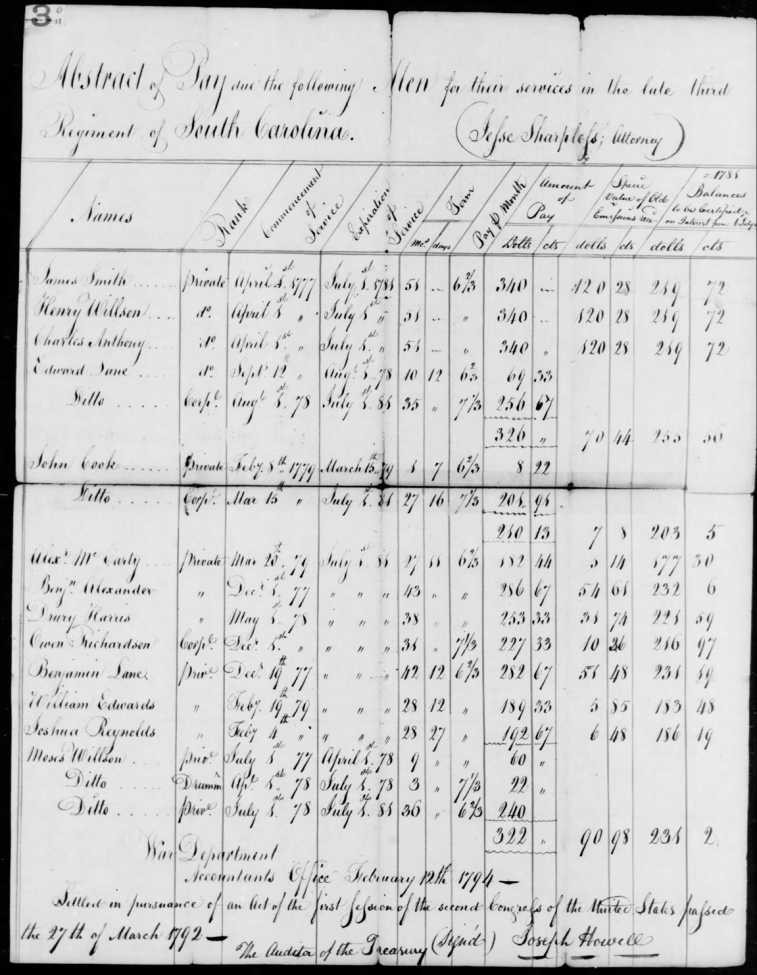 3
Abstract of Pay due the following Men for their services in the late third
Regiment of South Carolina. (Jesse Sharpless; Attorney)
Names Rank Commencement of Service Expiration of Service Term Mo.s days Pay P Month Amount of Pay Dolls cts Value of Old dolls cts 1781 Balances to be Certified on Interest from dolls cts
James Smith Private April 1.st 1777 July 1.st 1781 51 6 2/3 340 120 28 219 72
Henry Willson do. April 1 " July 1.st " 51 " 340 120 28 219 72
Charles Anthony do. April 1.st " July 1. " 51 " 340 " 120 28 219 72
Edward Lane do. Sept.r 12 " Aug.t 1.st 78 10 12 6 2/3 69 33
Ditto Corp.l Aug.t 1.st 78 July 1.st 81 35 " 7 1/3 256 67
326 " 70 44 255 56
John Cook Private Feb.y 8th 1779 March 15th 79 1 7 6 2/3 8 22
Ditto Corp.l Mar 15th " July 1.st 81 27 16 7 1/3 201 91
210 13 7 8 203 5
Alex.r Mc Carty private Mar 20 79 July 1.st 81 27 11 6 2/3 182 44 5 14 177 30
Benj.n Alexander " Dec.r 1.st 77 " " " 43 " " 286 67 54 61 232 6
Drury Harris " May 1.st 78 " " " 38 " " 253 33 31 74 221 59
Owen Richardson Corp.l Dec.r 1.st " " " " 31 " 7 1/3 227 33 10 26 216 97
Benjamin Lane priv.e Dec.r 19th 77 " " 42 12 6 2/3 282 67 51 48 231 19
William Edwards " Feb.y 19th 79 " " " 28 12 " 189 33 5 85 183 48
Joshua Reynolds " Feb.y 4th " " " " 28 27 " 192 67 6 48 186 19
Moses Willson priv.e July 1.st 77 April 1.st 78 9 " " 60 "
Ditto Drumm.r Ap.l 1.st 78 July 1.st 78 3 " 7 1/3 22 "
Ditto priv.e July 1.st 78 July 1.st 81 36 " 6 2/3 240
322 " 90 98 231 2
War Department
Accountants Office February 12th 1794
Settled in pursuance of an Act of the first session of the second Congress of the United States passed
the 27th of March 1792
The Auditor of the Treasury (Sign'd) Joseph Howell